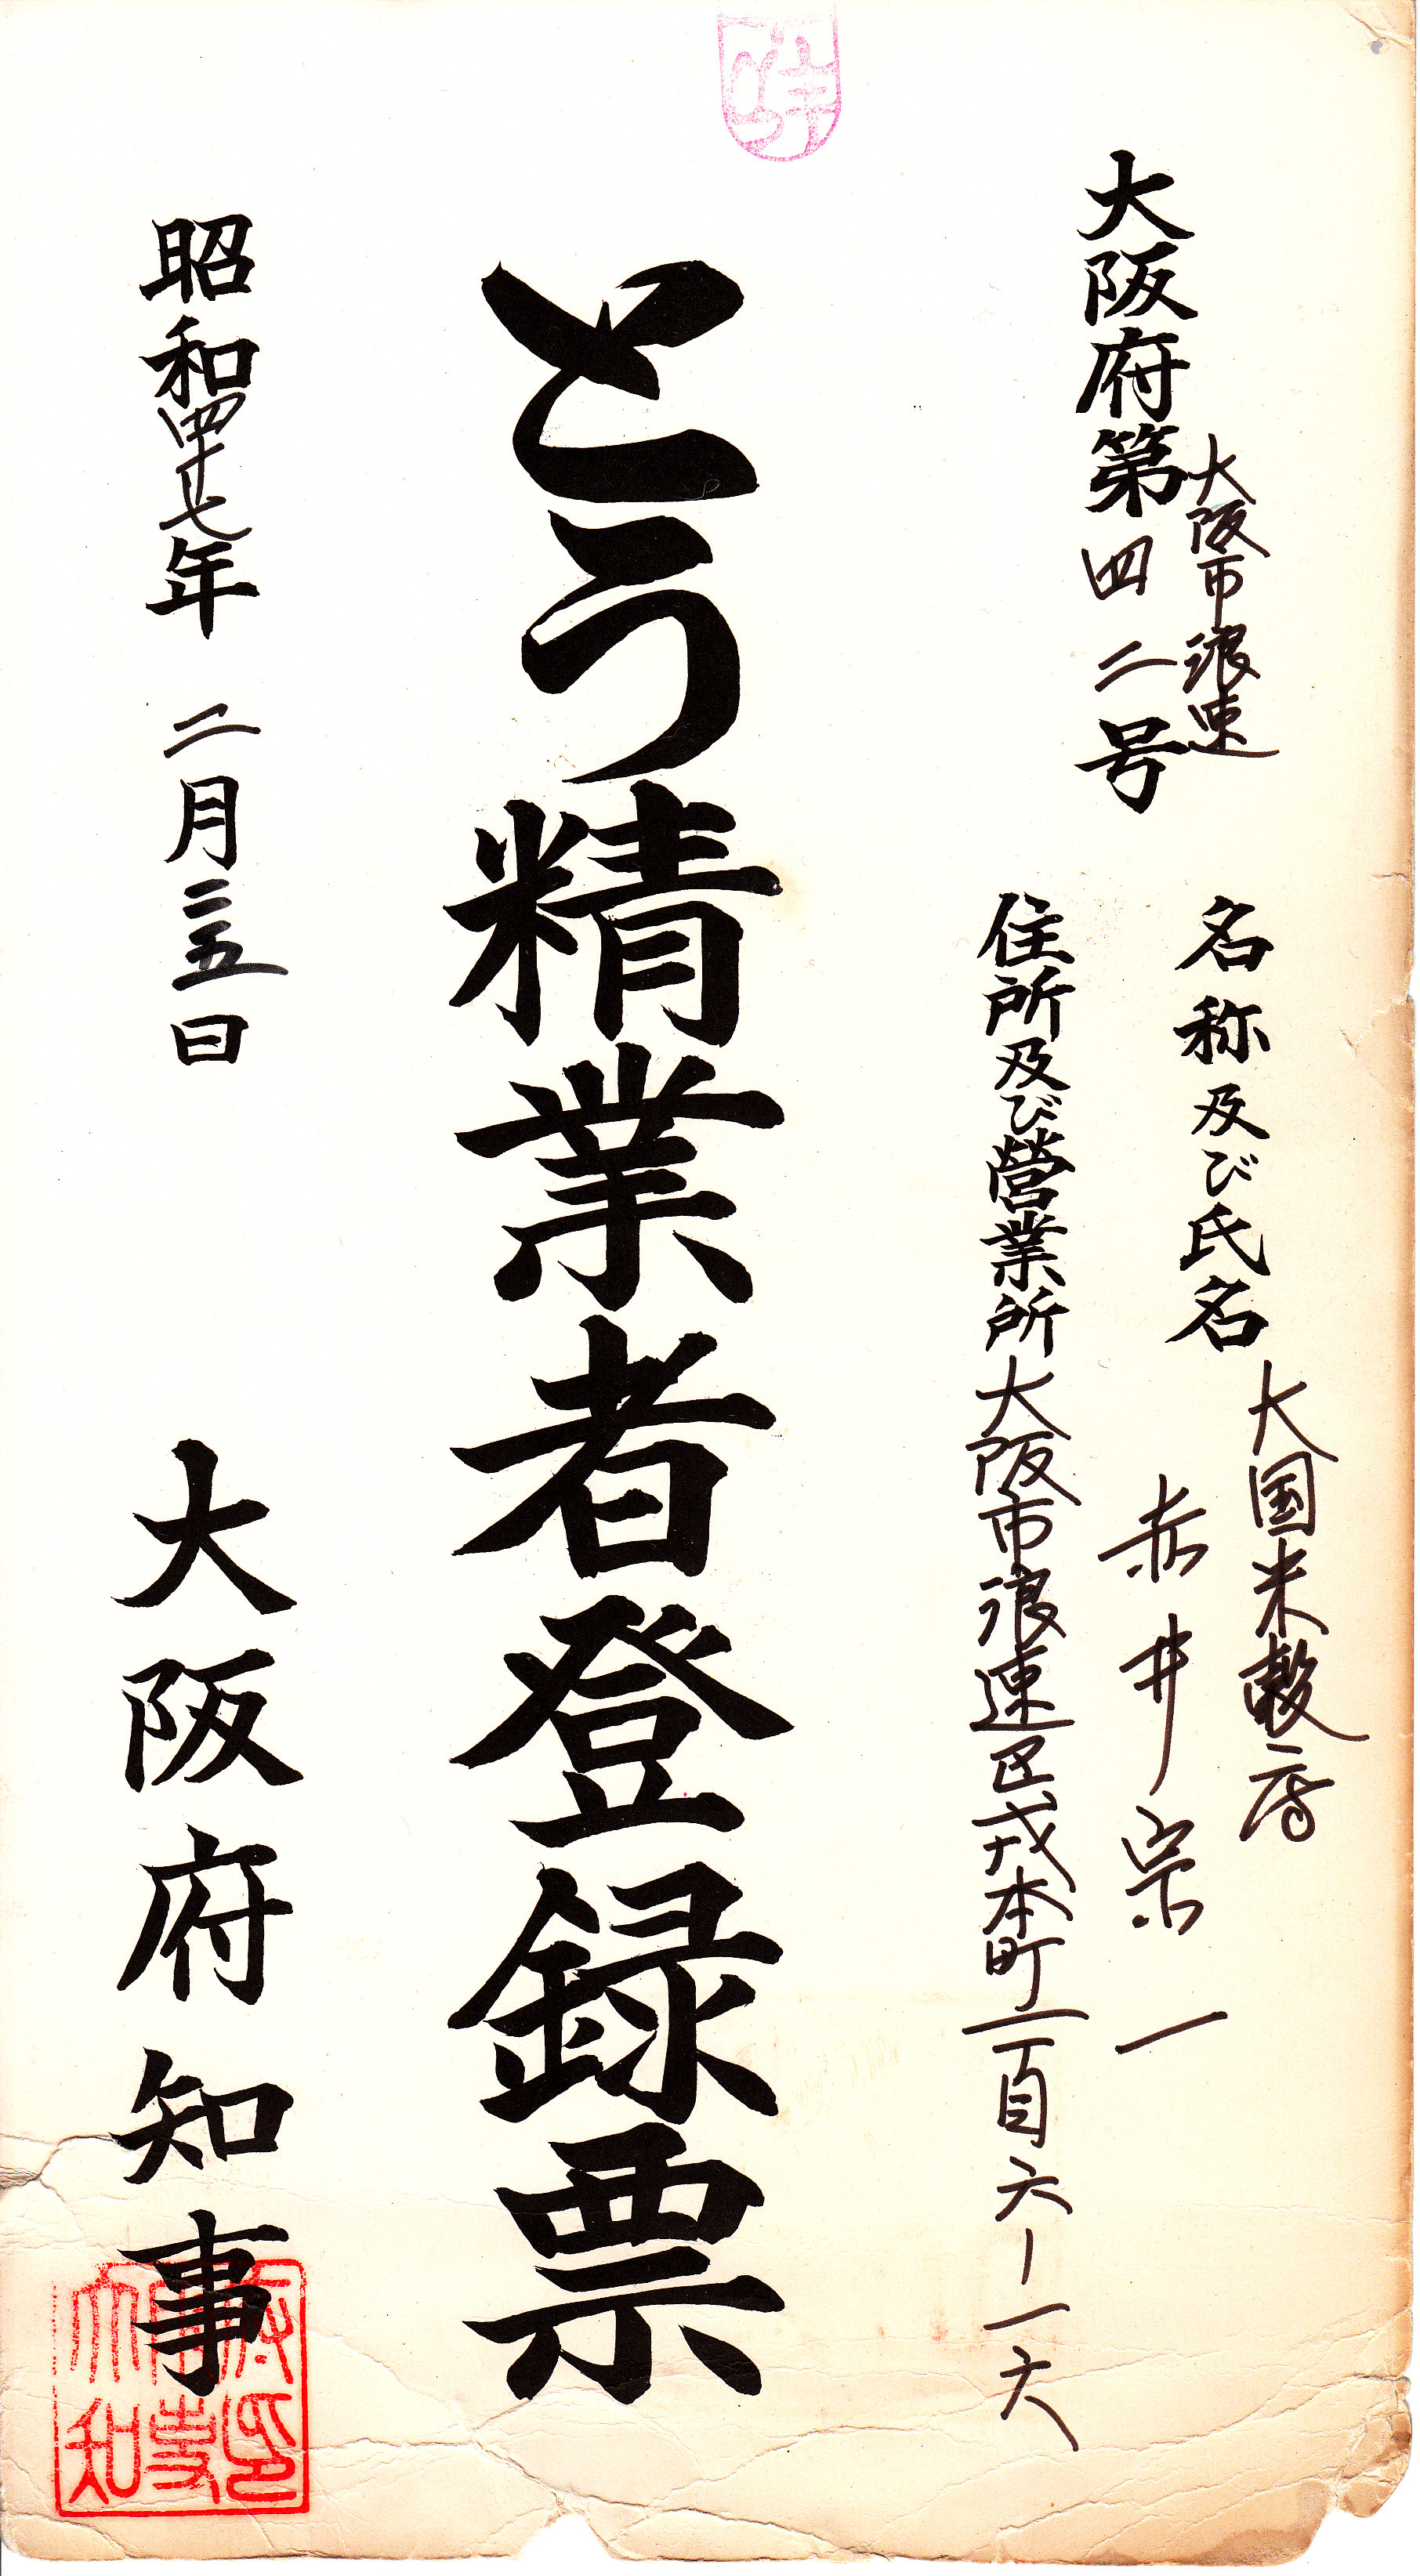 大阪市浪速
大阪府第四二号
名称及び氏名 大国米穀店
赤井宗一
住所及び営業所 大阪市浪速区戎本町一百六ー一六
とう精業者登録票
昭和四十七年 二月二五日
大阪府知事